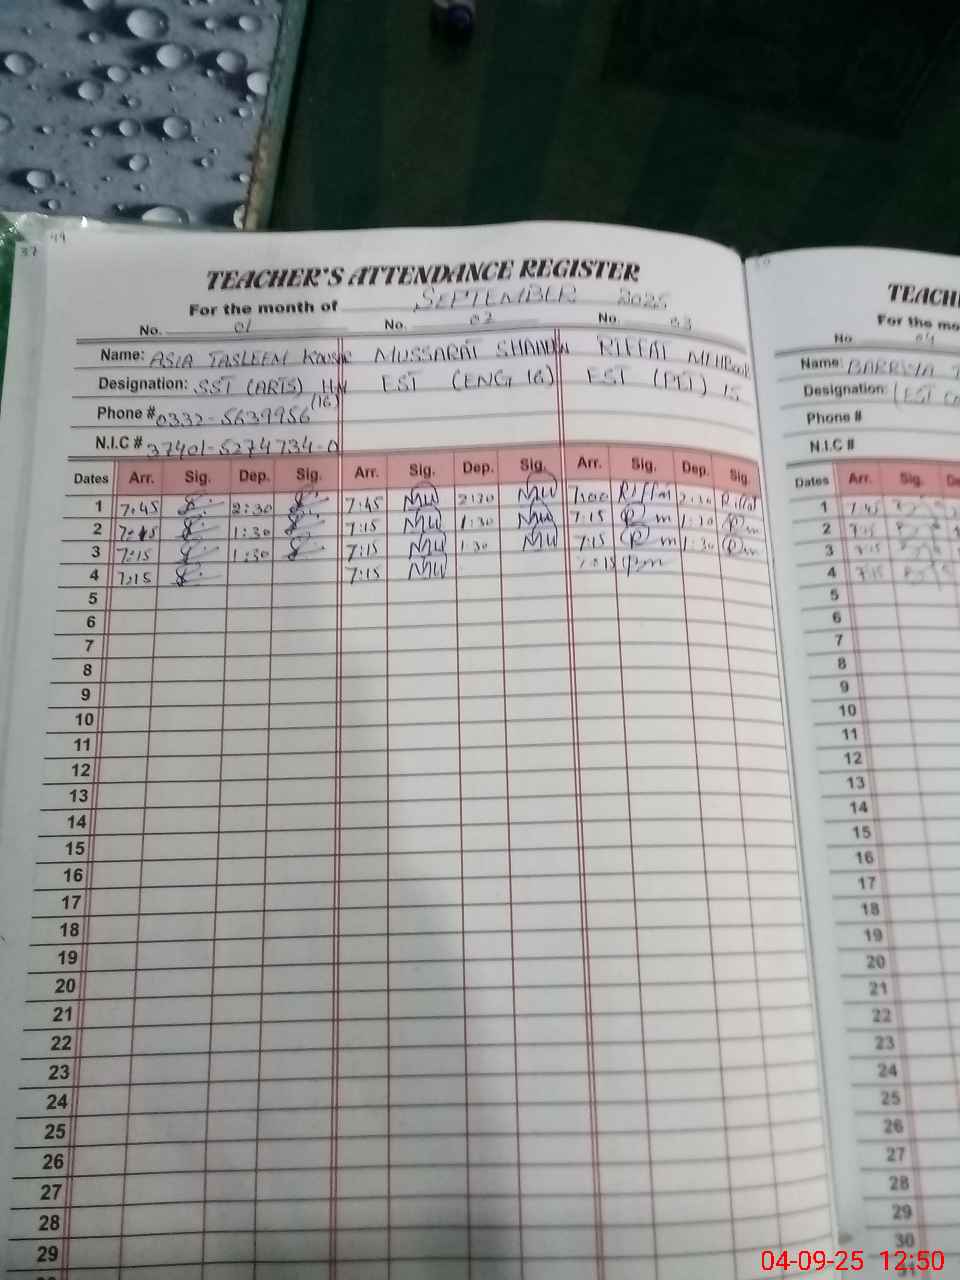 37 49
TEACHER'S ATTENDANCE REGISTER
For the month of SEPTEMBER 2025
No. 01 No. 02 No. 03
Name: ASIA TASLEEM KOUSAR MUSSARAT SHAHEEN RIFFAT MEHBOOB
Designation: SST (ARTS) HM (16) EST (ENG 16) EST (PET) 15
Phone # 0332-5639956
N.I.C # 37401-5274734-0
Dates Arr. Sig. Dep. Sig. Arr. Sig. Dep. Sig. Arr. Sig. Dep. Sig.
1 7:45 2:30 7:45 MW 2:30 MW 7:00 Riffat 2:30 Riffat
2 7:15 1:30 7:15 MW 1:30 MW 7:15 Rm 1:30 Rm
3 7:15 1:30 7:15 MW 1:30 MW 7:15 Rm 1:30 Rm
4 7:15 7:15 MW 7:15 Rm
5
6
7
8
9
10
11
12
13
14
15
16
17
18
19
20
21
22
23
24
25
26
27
28
29
TEACH
For the mo
No 04
Name: BARRYIA
Designation: (EST
Phone #
N.I.C #
Dates Arr. Sig. De
1 7:45
2 7:15
3 7:15
4 7:15
5
6
7
8
9
10
11
12
13
14
15
16
17
18
19
20
21
22
23
24
25
26
27
28
29
30
04-09-25 12:50